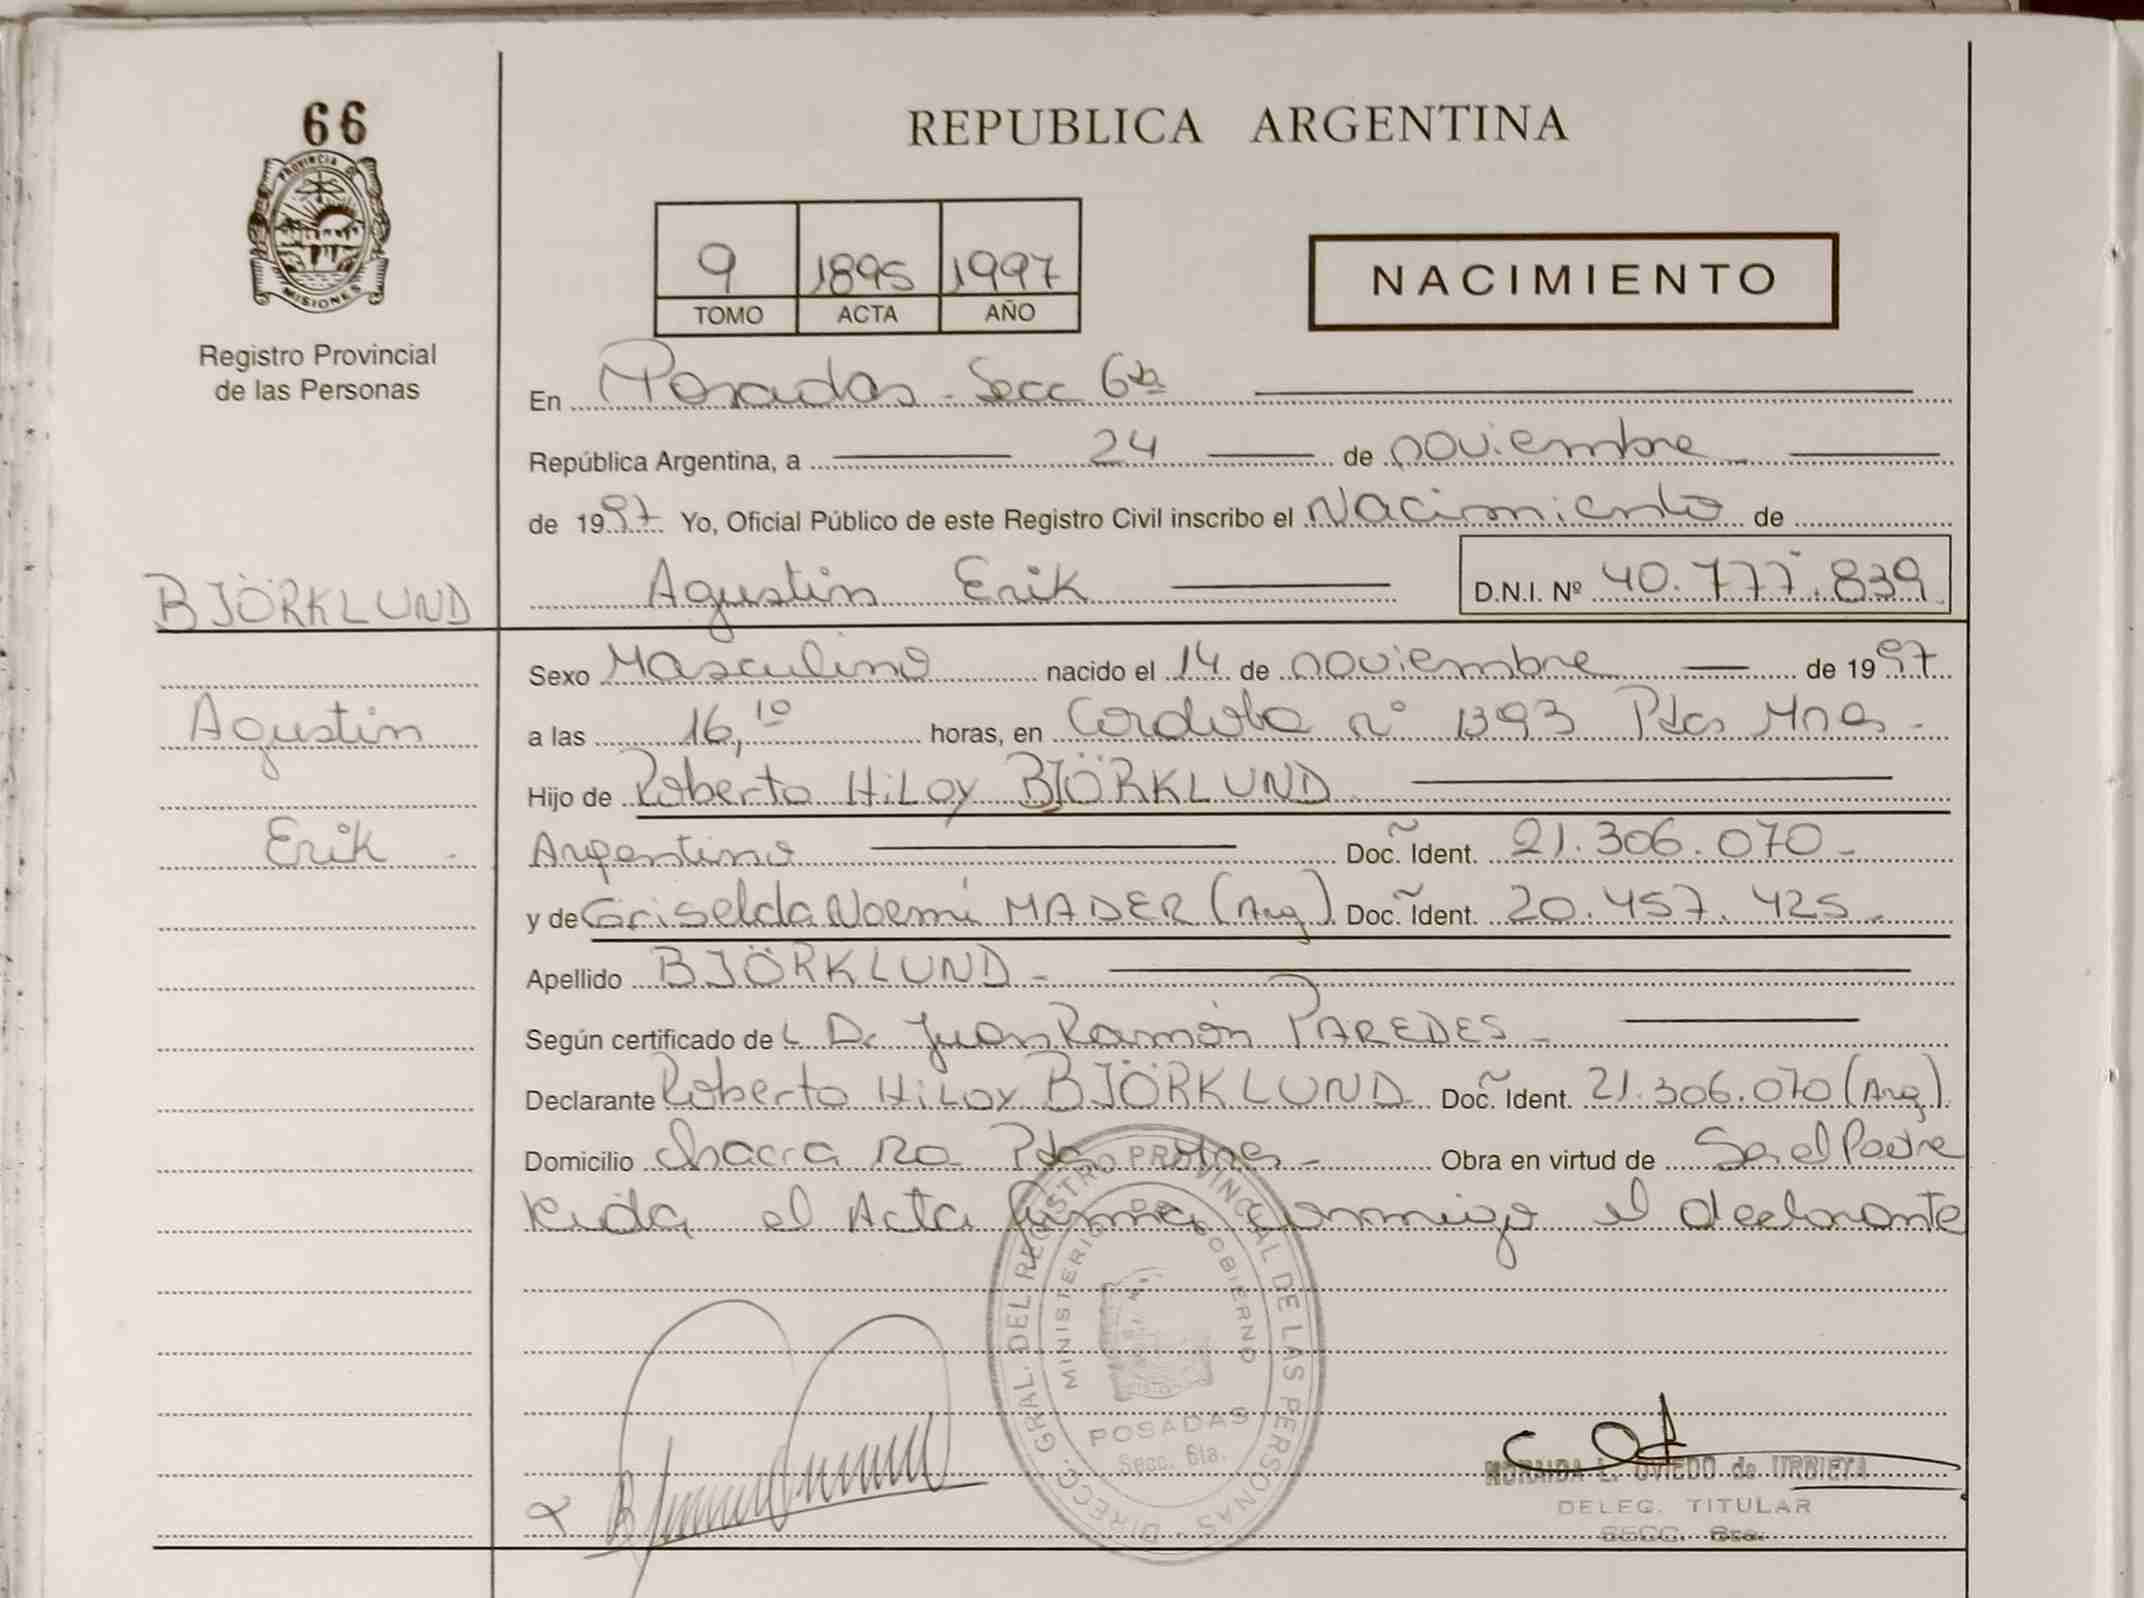 66
PROVINCIA DE
MISIONES
Registro Provincial
de las Personas
REPUBLICA ARGENTINA
9 1895 1997
TOMO ACTA AÑO
NACIMIENTO
En Posadas - Secc 6ta
República Argentina, a 24 de noviembre
de 1997 Yo, Oficial Público de este Registro Civil inscribo el Nacimiento de
BJÖRKLUND
Agustin Erik D.N.I. Nº 40.777.839
Sexo Masculino nacido el 14 de noviembre de 1997
Agustin
a las 16,10 horas, en Cordoba nº 1393 Pdas Mnes -
Hijo de Roberto HiLoy BJÖRKLUND
Erik -
Argentino Doc. Ident. 21.306.070 -
y de Griselda Noemí MADER (Arg) Doc. Ident. 20.457.425 -
Apellido BJÖRKLUND -
Según certificado de L Dr Juan Ramón PAREDES -
Declarante Roberto HiLoy BJÖRKLUND Doc. Ident. 21.306.070 (Arg)
Domicilio Chacra Pdas Mnes - Obra en virtud de Ser el Padre
Leida el Acta firma conmigo el declarante
DIRECC. GRAL. DEL REGISTRO PROVINCIAL DE LAS PERSONAS
MINISTERIO DE GOBIERNO
POSADAS
Secc. 6ta.
L. OVIEDO de URBIETA
DELEG. TITULAR
SECC.